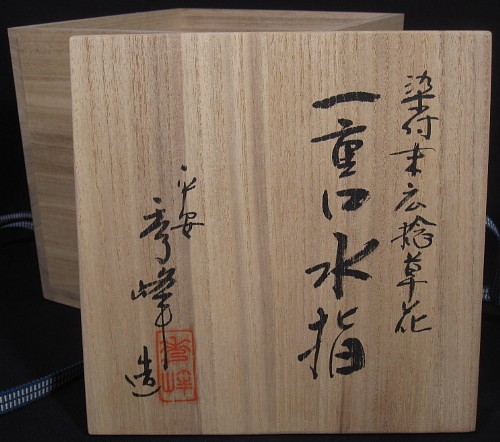 染付末広捻草花
一重口水指
平安
秀峰造
秀峰